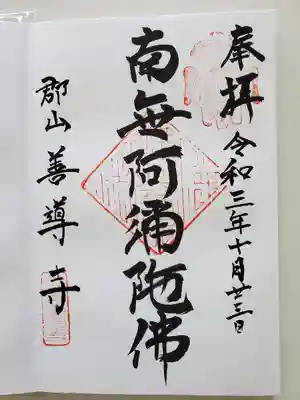 奉拝 令和三年十月廿三日
南無阿彌陀佛
郡山 善導寺